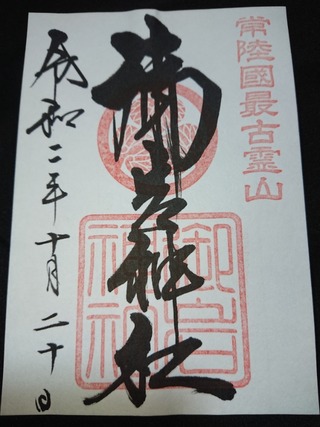 常陸國最古霊山
御岩神社
御岩
神社
令和二年十月二十日